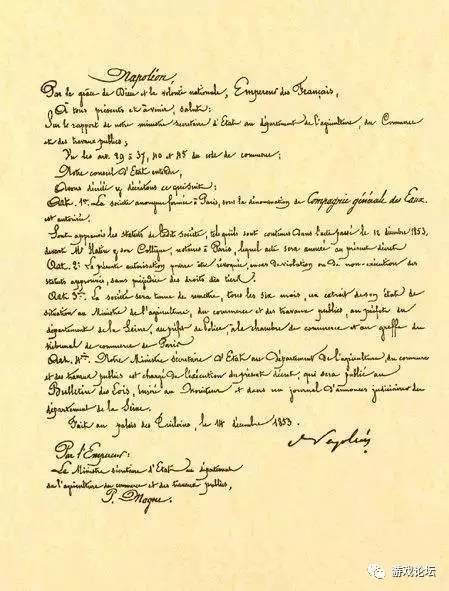 Napoléon,
Par la grâce de Dieu et la volonté nationale, Empereur des Français,
A tous présents et à venir, salut:
Sur le rapport de notre ministre secrétaire d'Etat au département de l'agriculture, du Commerce
et des travaux publics;
Vu les art. 29 à 37, 40 et 45 du code de commerce;
Notre conseil d'Etat entendu,
Avons décrété et décrétons ce qui suit:
Art. 1er. La société anonyme formée à Paris, sous la dénomination de Compagnie générale des Eaux
est autorisée.
Sont approuvés les statuts de dite société, tels qu'ils sont contenus dans l'acte passé le 12 décembre 1853,
devant Me Hatin et son Collègue, notaires à Paris, lequel acte sera annexé au présent décret.
Art. 2. La présente autorisation pourra être révoquée en cas de violation ou de non-exécution des
statuts approuvés, sans préjudice des droits des tiers.
Art. 3. La société sera tenue de remettre, tous les six mois, un extrait de son état de
situation au Ministre de l'agriculture, du commerce et des travaux publics, au préfet du
département de la Seine, au préfet de Police, à la chambre de commerce et au greffe du
tribunal de commerce de Paris
Art. 4. Notre Ministre Secrétaire d'Etat au Département de l'agriculture, du commerce
et des travaux publics est chargé de l'exécution du présent décret, qui sera publié au
Bulletin des Lois, inséré au Moniteur et dans un journal d'annonces judiciaires du
département de la Seine.
Fait au palais des Tuileries, le 14 décembre 1853.
Napoléon
Par l'Empereur:
Le Ministre Secrétaire d'Etat au département
de l'agriculture du commerce et des travaux publics,
P. Magne.
游戏论坛